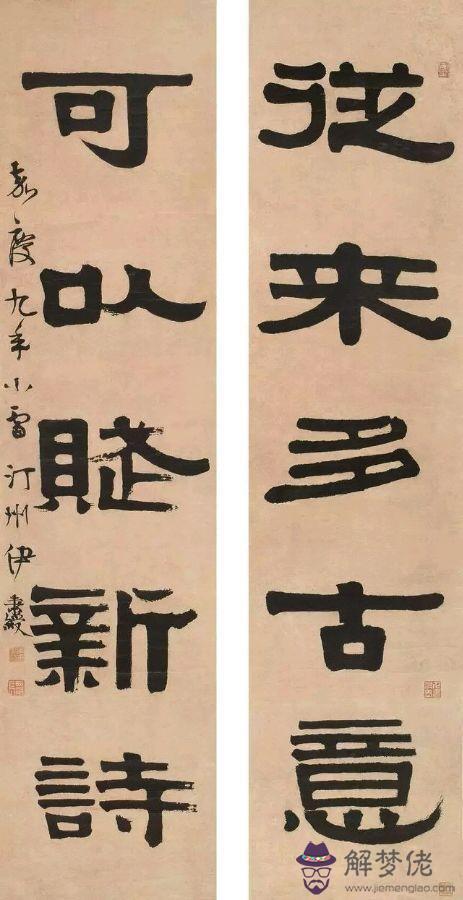 従来多古意
可以賦新詩
嘉慶九年小雪汀州伊秉綬
解梦佬
www.jiemenglao.com